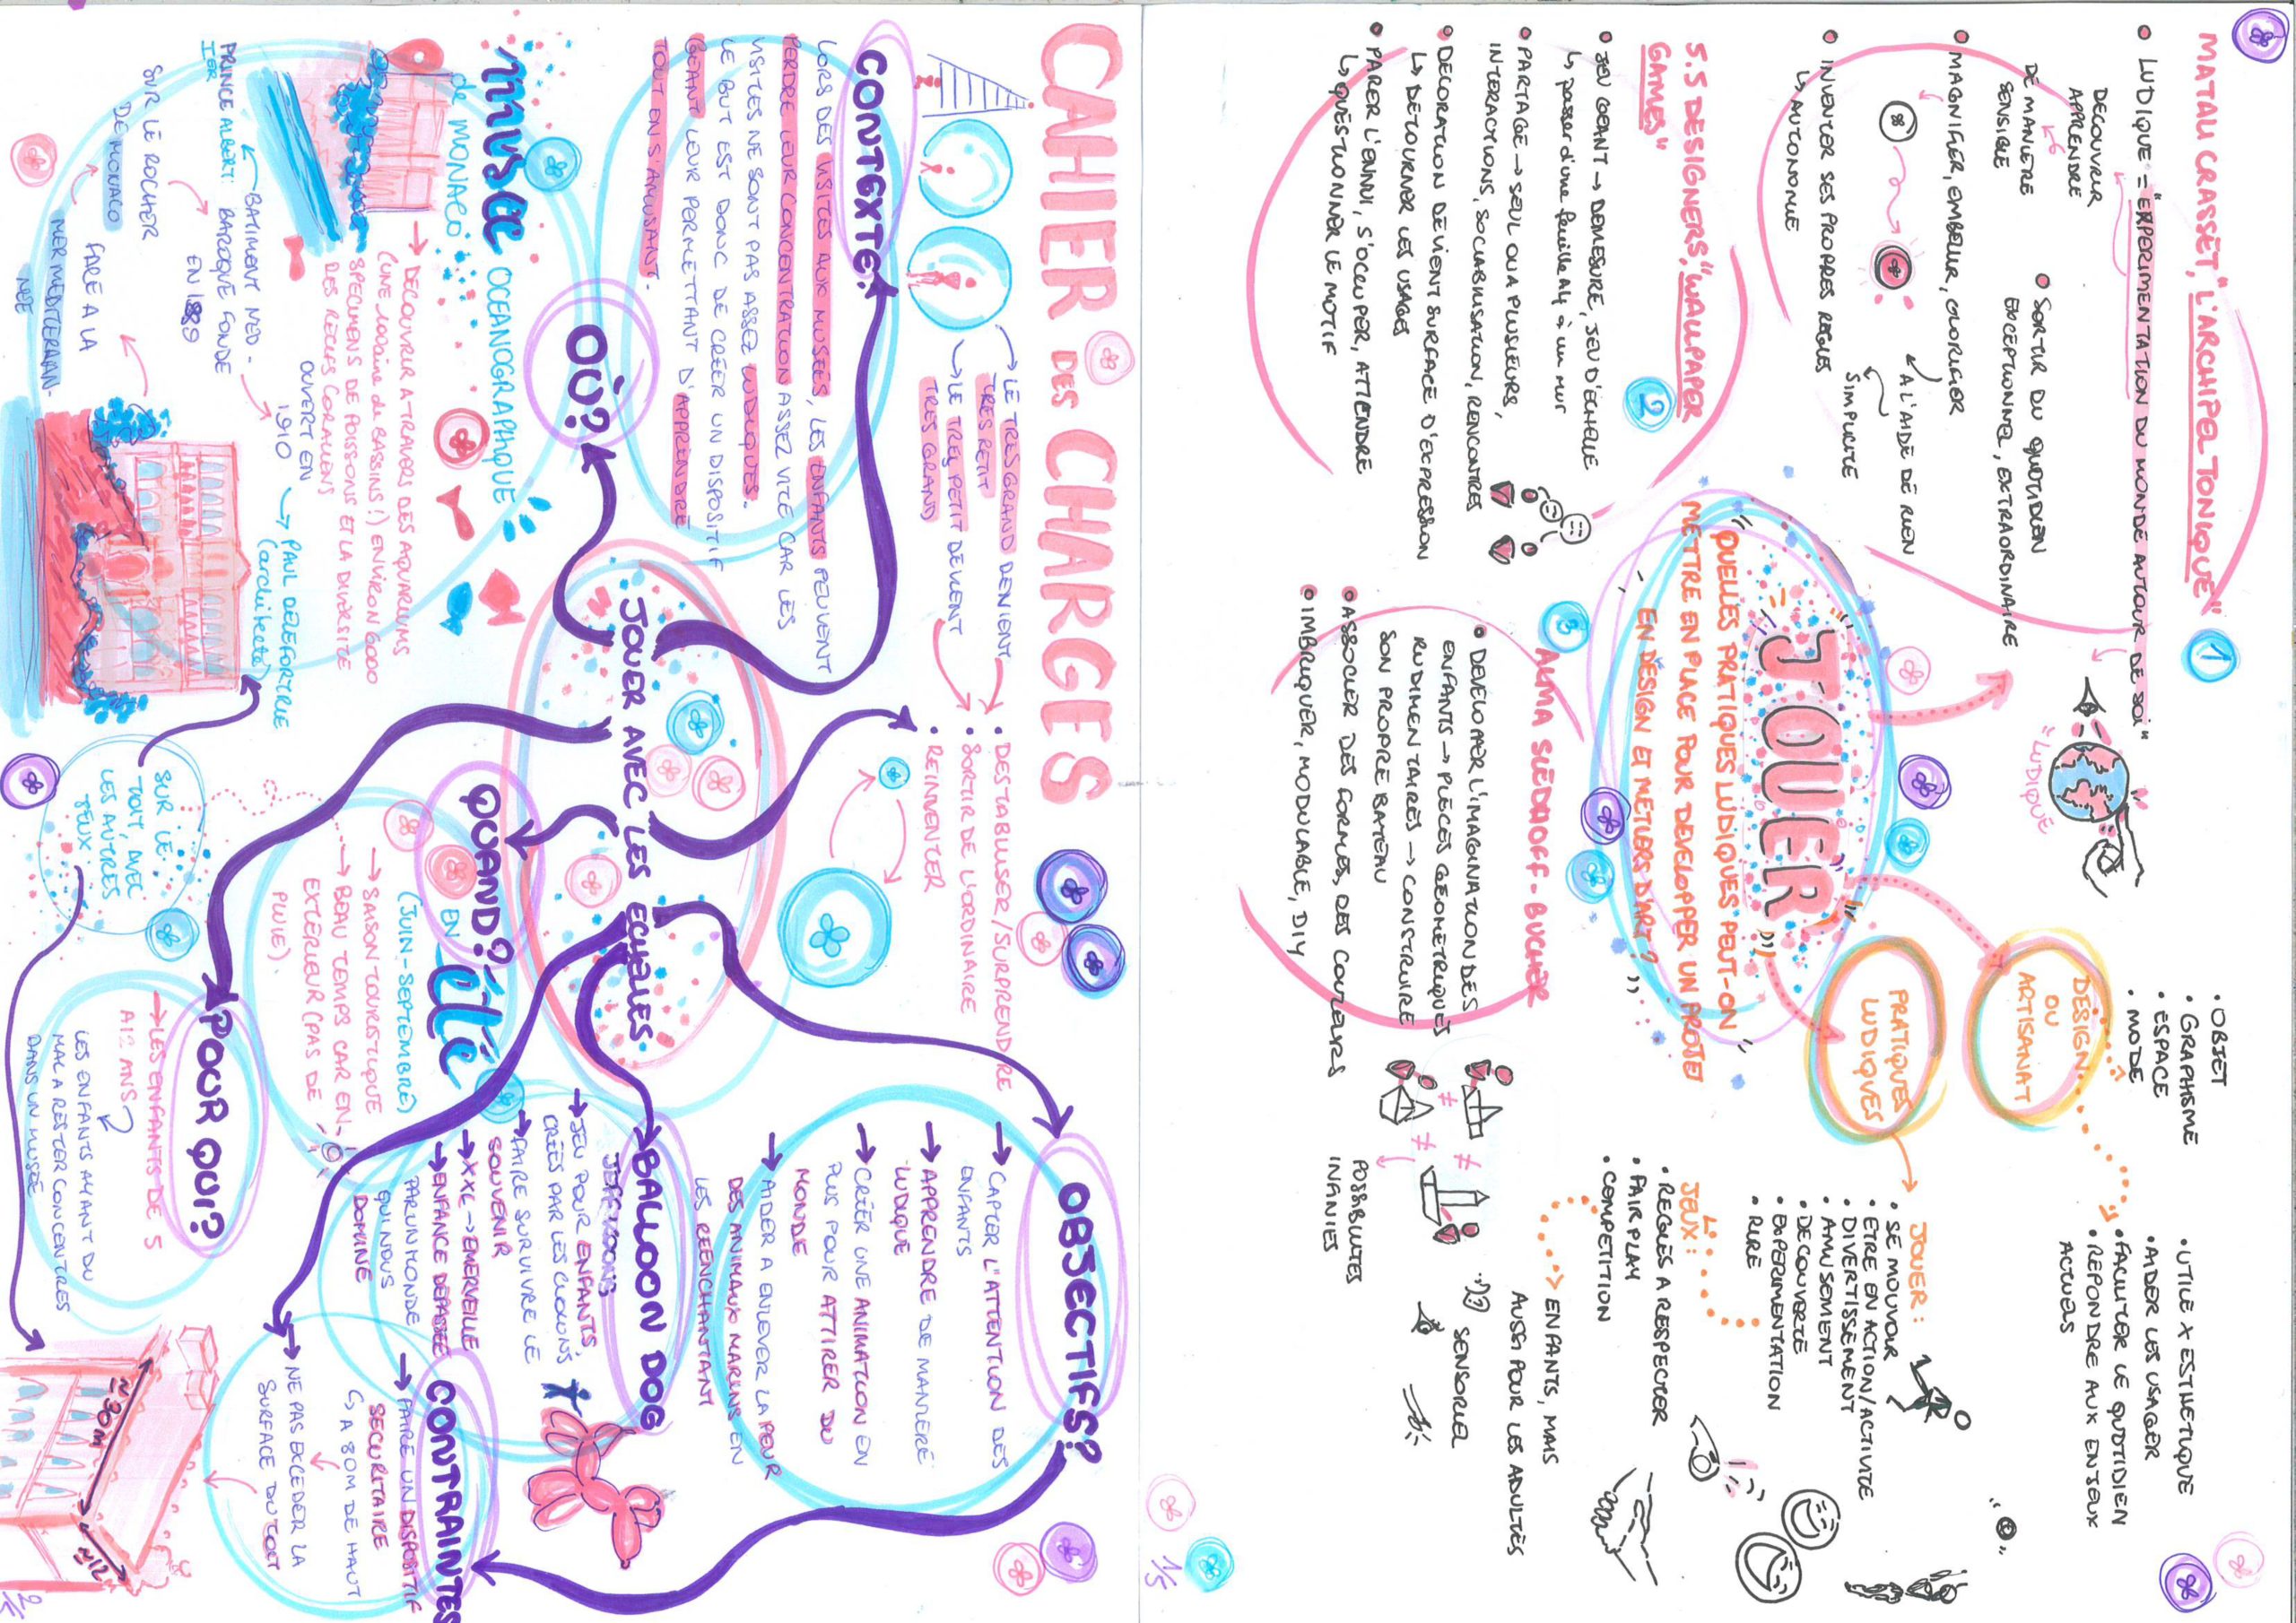 MATALI CRASSET, "L'ARCHIPEL TONIQUE"
1
• LUDIQUE = "EXPERIMENTATION DU MONDE AUTOUR DE SOI"
DECOUVRIR
APPRENDRE
DE MANIERE
SENSIBLE
• SORTIR DU QUOTIDIEN
EXCEPTIONNEL, EXTRAORDINAIRE
• MAGNIFIER, EMBELLIR, COLORISER
A L'AIDE DE RIEN
SIMPLICITE
• INVENTER SES PROPRES REGLES
↳ AUTONOMIE
"LUDIQUE"
5.5 DESIGNERS, "WALLPAPER
GAMES"
2
• JEU GEANT → DEMESURE, JEU D'ECHELLE
↳ passer d'une feuille A4 à un mur
• PARTAGE → SEUL OU A PLUSIEURS,
INTERACTIONS, SOCIABILISATION, RENCONTRES
• DECORATION DEVIENT SURFACE D'EXPRESSION
↳ DETOURNER LES USAGES
• PARER L'ENNUI, S'OCCUPER, ATTENDRE
↳ QUESTIONNER LE MOTIF
"JOUER"
"QUELLES PRATIQUES LUDIQUES PEUT-ON
METTRE EN PLACE POUR DEVELOPPER UN PROJET
EN DESIGN ET METIERS D'ART?"
3
• DEVELOPPER L'IMAGINATION DES
ENFANTS → PIECES GEOMETRIQUES
RUDIMENTAIRES → CONSTRUIRE
SON PROPRE BATEAU
• ASSOCIER DES FORMES, DES COULEURS
• IMBRIQUER, MODULABLE, DIY
≠ ≠ ≠
POSSIBILITES
INFINIES
DESIGN
OU
ARTISANAT
• OBJET
• GRAPHISME
• ESPACE
• MODE
• UTILE X ESTHETIQUE
• AIDER LES USAGER
• FACILITER LE QUOTIDIEN
• REPONDRE AUX ENJEUX
ACTUELS
PRATIQUES
LUDIQUES
JOUER :
• SE MOUVOIR
• ETRE EN ACTION/ACTIVITE
• DIVERTISSEMENT
• AMUSEMENT
• DECOUVERTE
• EXPERIMENTATION
• RIRE
JEUX :
• REGLES A RESPECTER
• FAIR PLAY
• COMPETITION
ENFANTS, MAIS
AUSSI POUR LES ADULTES
SENSORIEL
1/5
CAHIER DES CHARGES
→ LE TRES GRAND DEVIENT
TRES PETIT
→ LE TRES PETIT DEVIENT
TRES GRAND
• DESTABILISER / SURPRENDRE
• SORTIR DE L'ORDINAIRE
• REINVENTER
CONTEXTE?
LORS DES VISITES AUX MUSEES, LES ENFANTS PEUVENT
PERDRE LEUR CONCENTRATION ASSEZ VITE CAR LES
VISITES NE SONT PAS ASSEZ LUDIQUES.
LE BUT EST DONC DE CREER UN DISPOSITIF
GEANT LEUR PERMETTANT D'APPRENDRE
TOUT EN S'AMUSANT.
JOUER AVEC LES ECHELLES
OÙ?
musée OCEANOGRAPHIQUE
de MONACO
→ DECOUVRIR A TRAVERS DES AQUARIUMS
(UNE 100aine de BASSINS!) ENVIRON 6000
SPECIMENS DE POISSONS ET LA DIVERSITE
DES RECIFS CORALLIENS
BATIMENT NEO-
BAROQUE FONDE
EN 1889
PRINCE ALBERT
IER
SUR LE ROCHER
DE MONACO
FACE A LA
MER MEDITERRAN-
NEE
OUVERT EN
1910
→ PAUL DELEFORTRIE
(architecte)
QUAND?
EN été
(JUIN-SEPTEMBRE)
→ SAISON TOURISTIQUE
→ BEAU TEMPS CAR EN
EXTERIEUR (PAS DE
PLUIE).
SUR LE
TOIT, AVEC
LES AUTRES
JEUX.
POUR QUI?
→ LES ENFANTS DE 5
A 12 ANS
LES ENFANTS AYANT DU
MAL A RESTER CONCENTRES
DANS UN MUSEE
OBJECTIFS?
→ CAPTER L'ATTENTION DES
ENFANTS
→ APPRENDRE DE MANIERE
LUDIQUE
→ CRÉER UNE ANIMATION EN
PLUS POUR ATTIRER DU
MONDE
→ AIDER A ENLEVER LA PEUR
DES ANIMAUX MARINS EN
LES REENCHANTANT
BALLOON DOG
JEFF KOONS
→ JEU POUR ENFANTS
CRÉES PAR LES CLOWNS
→ FAIRE SURVIVRE LE
SOUVENIR
→ XXL → EMERVEILLE
→ ENFANCE DEPASSEE
PAR UN MONDE
QUI NOUS
DOMINE
CONTRAINTES
→ FAIRE UN DISPOSITIF
SECURITAIRE
↳ A 80M DE HAUT
→ NE PAS EXCEDER LA
SURFACE DU TOIT
≈30m
≈12
2/5